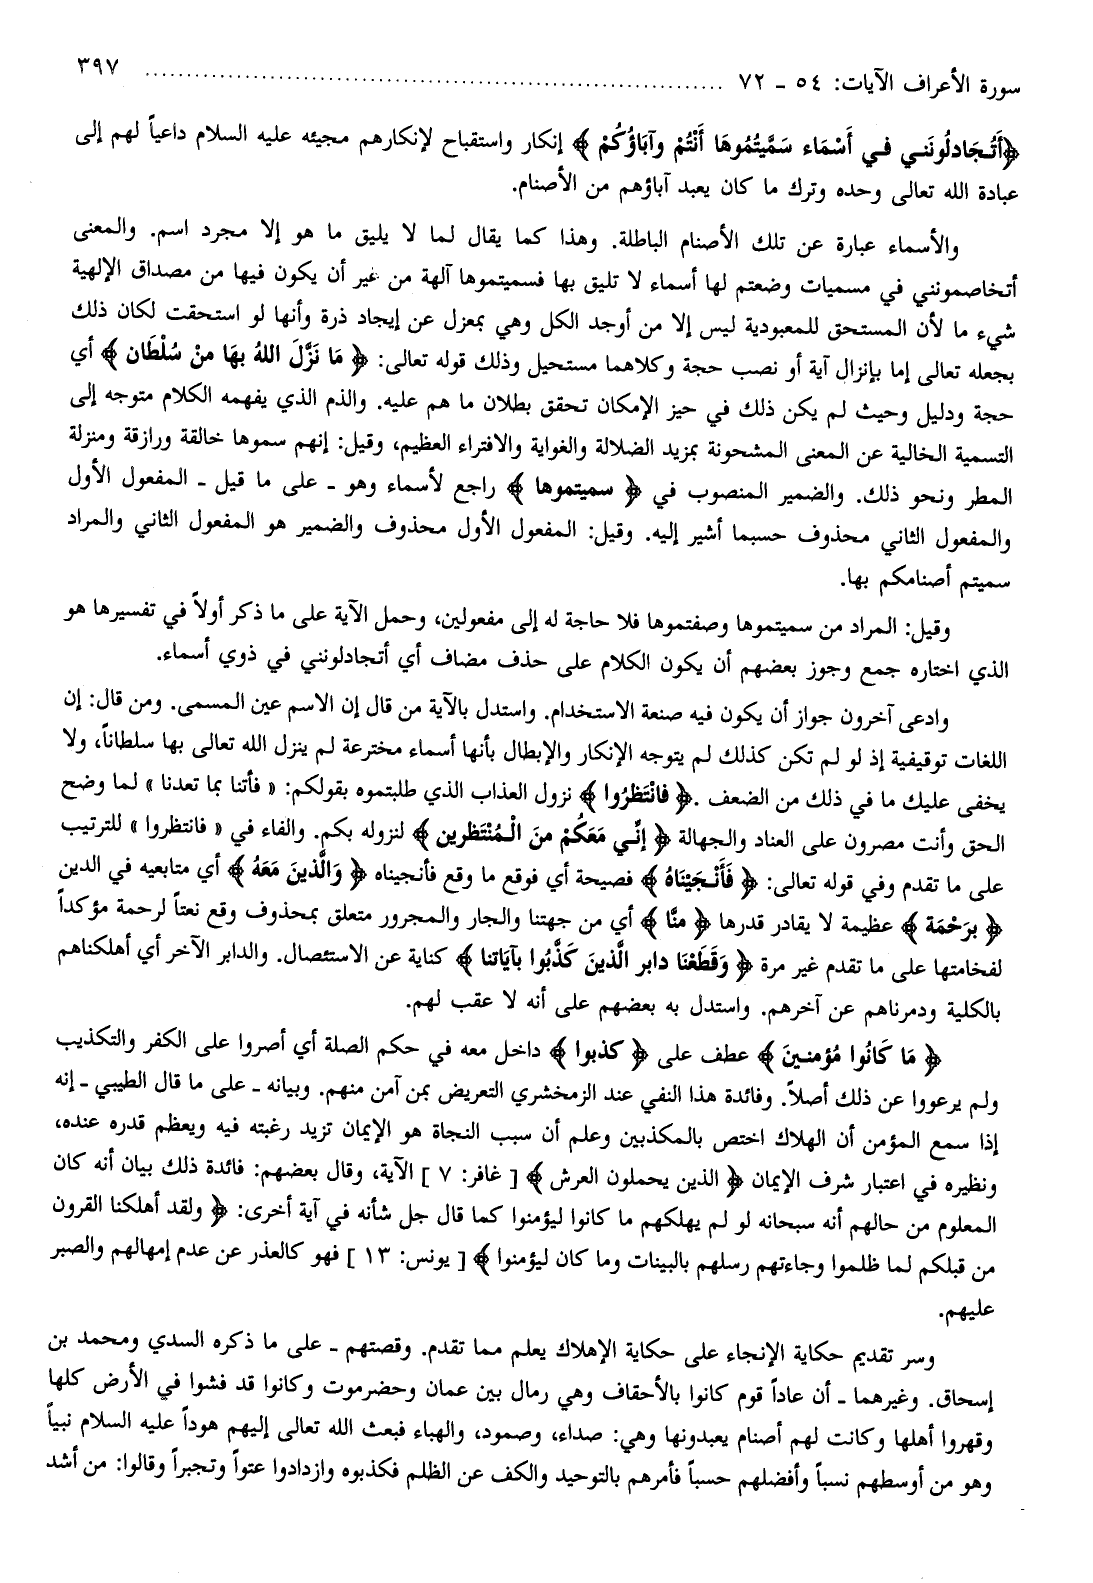 سورة الأعراف الآيات: ٥٤ ـ ٧٢ ........................................................................ ٣٩٧
﴿أَتُجَادلُونَني في أَسْمَاء سَمَّيتُمُوهَا أَنْتُمْ وآبَاؤُكُمْ ﴾ إنكار واستقباح لإنكارهم مجيئه عليه السلام داعياً لهم إلى
عبادة الله تعالى وحده وترك ما كان يعبد آباؤهم من الأصنام.
والأسماء عبارة عن تلك الأصنام الباطلة. وهذا كما يقال لما لا يليق ما هو إلا مجرد اسم. والمعنى
أتخاصمونني في مسميات وضعتم لها أسماء لا تليق بها فسميتموها آلهة من غير أن يكون فيها من مصداق الإلهية
شيء ما لأن المستحق للمعبودية ليس إلا من أوجد الكل وهي بمعزل عن إيجاد ذرة وأنها لو استحقت لكان ذلك
بجعله تعالى إما بإنزال آية أو نصب حجة وكلاهما مستحيل وذلك قوله تعالى: ﴿ مَا نَزَّلَ اللهُ بهَا منْ سُلْطَان ﴾ أي
حجة ودليل وحيث لم يكن ذلك في حيز الإمكان تحقق بطلان ما هم عليه. والذم الذي يفهمه الكلام متوجه إلى
التسمية الخالية عن المعنى المشحونة بمزيد الضلالة والغواية والافتراء العظيم، وقيل: إنهم سموها خالقة ورازقة ومنزلة
المطر ونحو ذلك. والضمير المنصوب في ﴿ سميتموها ﴾ راجع لأسماء وهو ـ على ما قيل ـ المفعول الأول
والمفعول الثاني محذوف حسبما أشير إليه. وقيل: المفعول الأول محذوف والضمير هو المفعول الثاني والمراد
سميتم أصنامكم بها.
وقيل: المراد من سميتموها وصفتموها فلا حاجة له إلى مفعولين، وحمل الآية على ما ذكر أولاً في تفسيرها هو
الذي اختاره جمع وجوز بعضهم أن يكون الكلام على حذف مضاف أي أتجادلونني في ذوي أسماء.
وادعى آخرون جواز أن يكون فيه صنعة الاستخدام. واستدل بالآية من قال إن الاسم عين المسمى. ومن قال: إن
اللغات توقيفية إذ لو لم تكن كذلك لم يتوجه الإنكار والإبطال بأنها أسماء مخترعة لم ينزل الله تعالى بها سلطاناً، ولا
يخفى عليك ما في ذلك من الضعف .﴿ فانْتَظرُوا ﴾ نزول العذاب الذي طلبتموه بقولكم: « فأتنا بما تعدنا » لما وضح
الحق وأنت مصرون على العناد والجهالة ﴿ إنِّي مَعَكُمْ منَ الْـمُنْتَظرين ﴾ لنزوله بكم. والفاء في « فانتظروا » للترتيب
على ما تقدم وفي قوله تعالى: ﴿ فَأَنْـجَيْنَاهُ ﴾ فصيحة أي فوقع ما وقع فأنجيناه ﴿ وَالَّذينَ مَعَهُ ﴾ أي متابعيه في الدين
﴿ برَحْمَة ﴾ عظيمة لا يقادر قدرها ﴿ منَّا ﴾ أي من جهتنا والجار والمجرور متعلق بمحذوف وقع نعتاً لرحمة مؤكداً
لفخامتها على ما تقدم غير مرة ﴿ وَقَطَعْنَا دابر الَّذينَ كَذَّبُوا بآيَاتنا ﴾ كناية عن الاستئصال. والدابر الآخر أي أهلكناهم
بالكلية ودمرناهم عن آخرهم. واستدل به بعضهم على أنه لا عقب لهم.
﴿ مَا كَانُوا مُؤمنـينَ ﴾ عطف على ﴿ كذبوا ﴾ داخل معه في حكم الصلة أي أصروا على الكفر والتكذيب
ولم يرعووا عن ذلك أصلاً. وفائدة هذا النفي عند الزمخشري التعريض بمن آمن منهم. وبيانه ـ على ما قال الطيبي ـ إنه
إذا سمع المؤمن أن الهلاك اختص بالمكذبين وعلم أن سبب النجاة هو الإيمان تزيد رغبته فيه ويعظم قدره عنده،
ونظيره في اعتبار شرف الإيمان ﴿ الذين يحملون العرش ﴾ [ غافر: ٧ ] الآية، وقال بعضهم: فائدة ذلك بيان أنه كان
المعلوم من حالهم أنه سبحانه لو لم يهلكهم ما كانوا ليؤمنوا كما قال جل شأنه في آية أخرى: ﴿ ولقد أهلكنا القرون
من قبلكم لما ظلموا وجاءتهم رسلهم بالبينات وما كان ليؤمنوا ﴾ [ يونس: ١٣ ] فهو كالعذر عن عدم إمهالهم والصبر
عليهم.
وسر تقديم حكاية الإنجاء على حكاية الإهلاك يعلم مما تقدم. وقصتهم ـ على ما ذكره السدي ومحمد بن
إسحاق. وغيرهما ـ أن عاداً قوم كانوا بالأحقاف وهي رمال بين عمان وحضرموت وكانوا قد فشوا في الأرض كلها
وقهروا أهلها وكانت لهم أصنام يعبدونها وهي: صداء، وصمود، والهباء فبعث الله تعالى إليهم هوداً عليه السلام نبياً
وهو من أوسطهم نسباً وأفضلهم حسباً فأمرهم بالتوحيد والكف عن الظلم فكذبوه وازدادوا عتواً وتجبراً وقالوا: من أشد